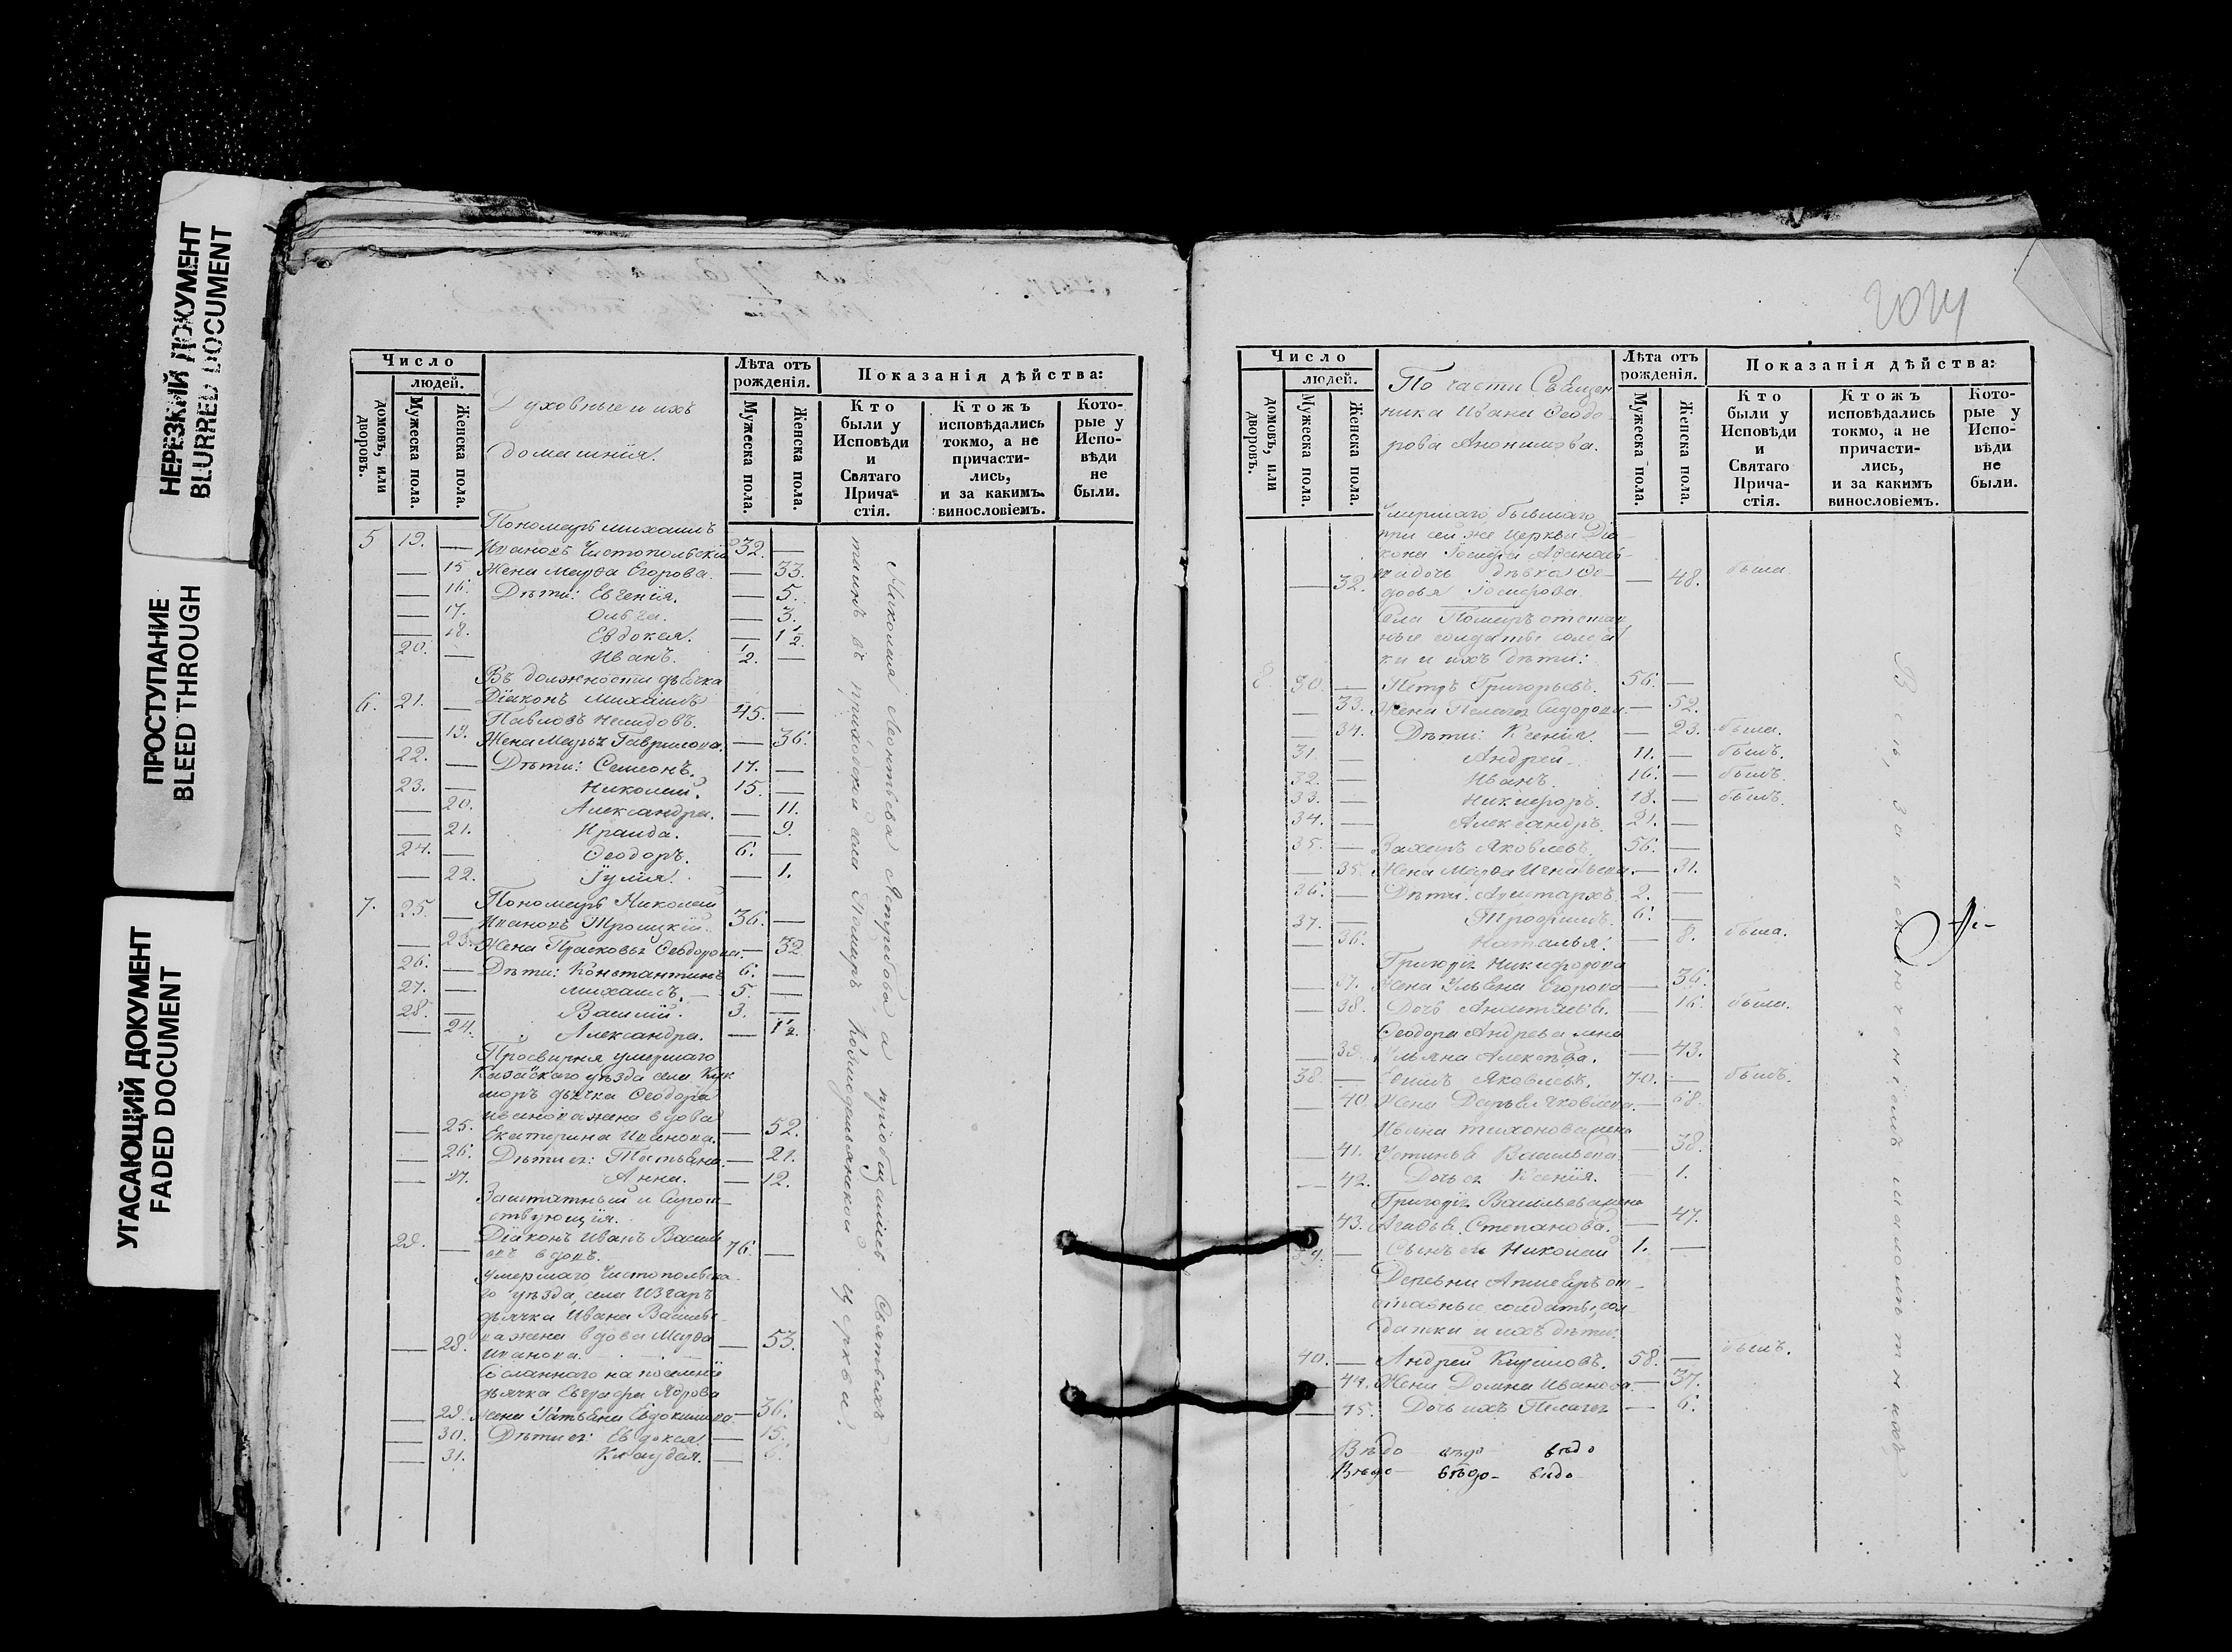 НЕРЕЗКИЙ ДОКУМЕНТ
BLURRED DOCUMENT
ПРОСТУПАНИЕ
BLEED THROUGH
УГАСАЮЩИЙ ДОКУМЕНТ
FADED DOCUMENT
Число
людей.
домовъ, или дворовъ.
Мужеска пола.
Женска пола.
Духовные и ихъ
домашнія.
Лѣта отъ
рожденія.
Мужеска пола.
Женска пола.
Показанія дѣйства:
Кто
были у
Исповѣди
и
Святаго
Прича-
стія.
Ктожъ
исповѣдались
токмо, а не
причасти-
лись,
и за какимъ
винословіемъ.
Кото-
рые у
Испо-
вѣди
не
были.
Пономарь Михаилъ
5 19. — Ивановъ Чистопольскій 32. —
— 15 Жена Марѳа Егорова. — 33.
— 16. Дѣти: Евгенія. — 5.
— 17. Ольга. — 3.
— 18. Евдокея. — 1 1/2.
20. — Иванъ. 1/2. —
Въ должности дьячка
6. 21. — Діаконъ Михаилъ 45. —
Павловъ
— 19. Жена Марья Гаврилова. — 36.
22. — Дѣти: Семеонъ. 17. —
23. — Николай. 15. —
— 20. Александра. — 11.
— 21. Ираида. — 9.
24. — Ѳеодоръ. 6. —
— 22. Іулія. — 1.
7. 25. — Пономарь Николай 36. —
Ивановъ Троицкій.
— 23. Жена Прасковья Ѳеодорова. — 32
26. — Дѣти: Константинъ 6. —
27. — Михаилъ. 5. —
28. — Василій. 3. —
— 24. Александра. — 1 1/2.
Просвирня, умершаго
уѣзда села Кук
моръ дьячка Ѳеодора
Иванова жена вдова
— 25. Екатерина Иванова. — 52.
— 26. Дѣти ея: Татьяна. — 21.
— 27. Анна. — 12.
Заштатный и Сирот-
ствующія.
29. — Діаконъ Иванъ Василь 76. —
евъ вдовъ.
Умершаго Чистопольска-
го уѣзда, села Изгаръ
дьячка Ивана Василье-
ва жена вдова Марѳа
— 28. Иванова. — 53.
Сосланнаго на поселеніе
дьячка Евграфа
— 29. Жена Татьяна Евдокимова — 36.
— 30. Дѣти ея: Евдокея — 15.
— 31. Клаудія. — 6.
Николая Леонтьева Ястребова, а пріобщались Святыхъ
таинъ въ приходской села Помаръ Космодаміанской церкви.
2024
Число
людей.
домовъ, или дворовъ.
Мужеска пола.
Женска пола.
По части Священ
ника Ивана Ѳеодо-
рова
Лѣта отъ
рожденія.
Мужеска пола.
Женска пола.
Показанія дѣйства:
Кто
были у
Исповѣди
и
Святаго
Прича-
стія.
Ктожъ
исповѣдались
токмо, а не
причасти-
лись,
и за какимъ
винословіемъ.
Кото-
рые у
Испо-
вѣди
не
были.
Умершаго бывшаго
при сей же церкви Діа-
кона
— 32. дочь дѣвка Ѳе- — 48. была
досья
Села Помаръ отстав
ные солдаты солдат
ки и ихъ дѣти:
8. 30. — Петръ Григорьевъ. 56. —
— 33. Жена Пелагея Сидорова. — 52.
— 34. Дѣти: Ксенія. — 23. была.
31. — Андрей 11. — былъ.
32. — Иванъ. 16. — былъ.
33. — Никифоръ. 18. — былъ.
34. — Александръ. 21. —
35. — Захаръ Яковлевъ. 56. —
— 35. Жена Марѳа Игнатьева. — 31.
36. — Дѣти: Аристархъ. 2. —
37. — Трофимъ. 6. —
— 36. Наталья. — 8. была.
Григорія Никифорова
— 37. Жена Ульяна Егорова — 36.
— 38. Дочь Анастасія. — 16. была.
Ѳеодора Андреева жена
— 39. Ульяна Алексѣева. — 43.
38. — Ефимъ Яковлевъ. 70. — былъ.
— 40. Жена Дарья Яковлева. — 68.
Ивана Тихонова жена
— 41. Устинья Васильева — 38.
— 42. Дочь ея Ксенія. — 1.
Григорія Васильева жена
— 43. Агафья Степанова. — 47.
39. — Сынъ ея Николай 1. —
Деревни от-
ставные солдаты, сол
датки и ихъ дѣти:
40. — Андрей Кириловъ. 58. — былъ.
— 44. Жена Домна Иванова — 37.
— 45. Дочь ихъ Пелагея — 6.
Вѣдо вѣдо вѣдо
Вѣдо- вѣдо- вѣдо
Всѣ, за исключеніемъ малолѣтнихъ